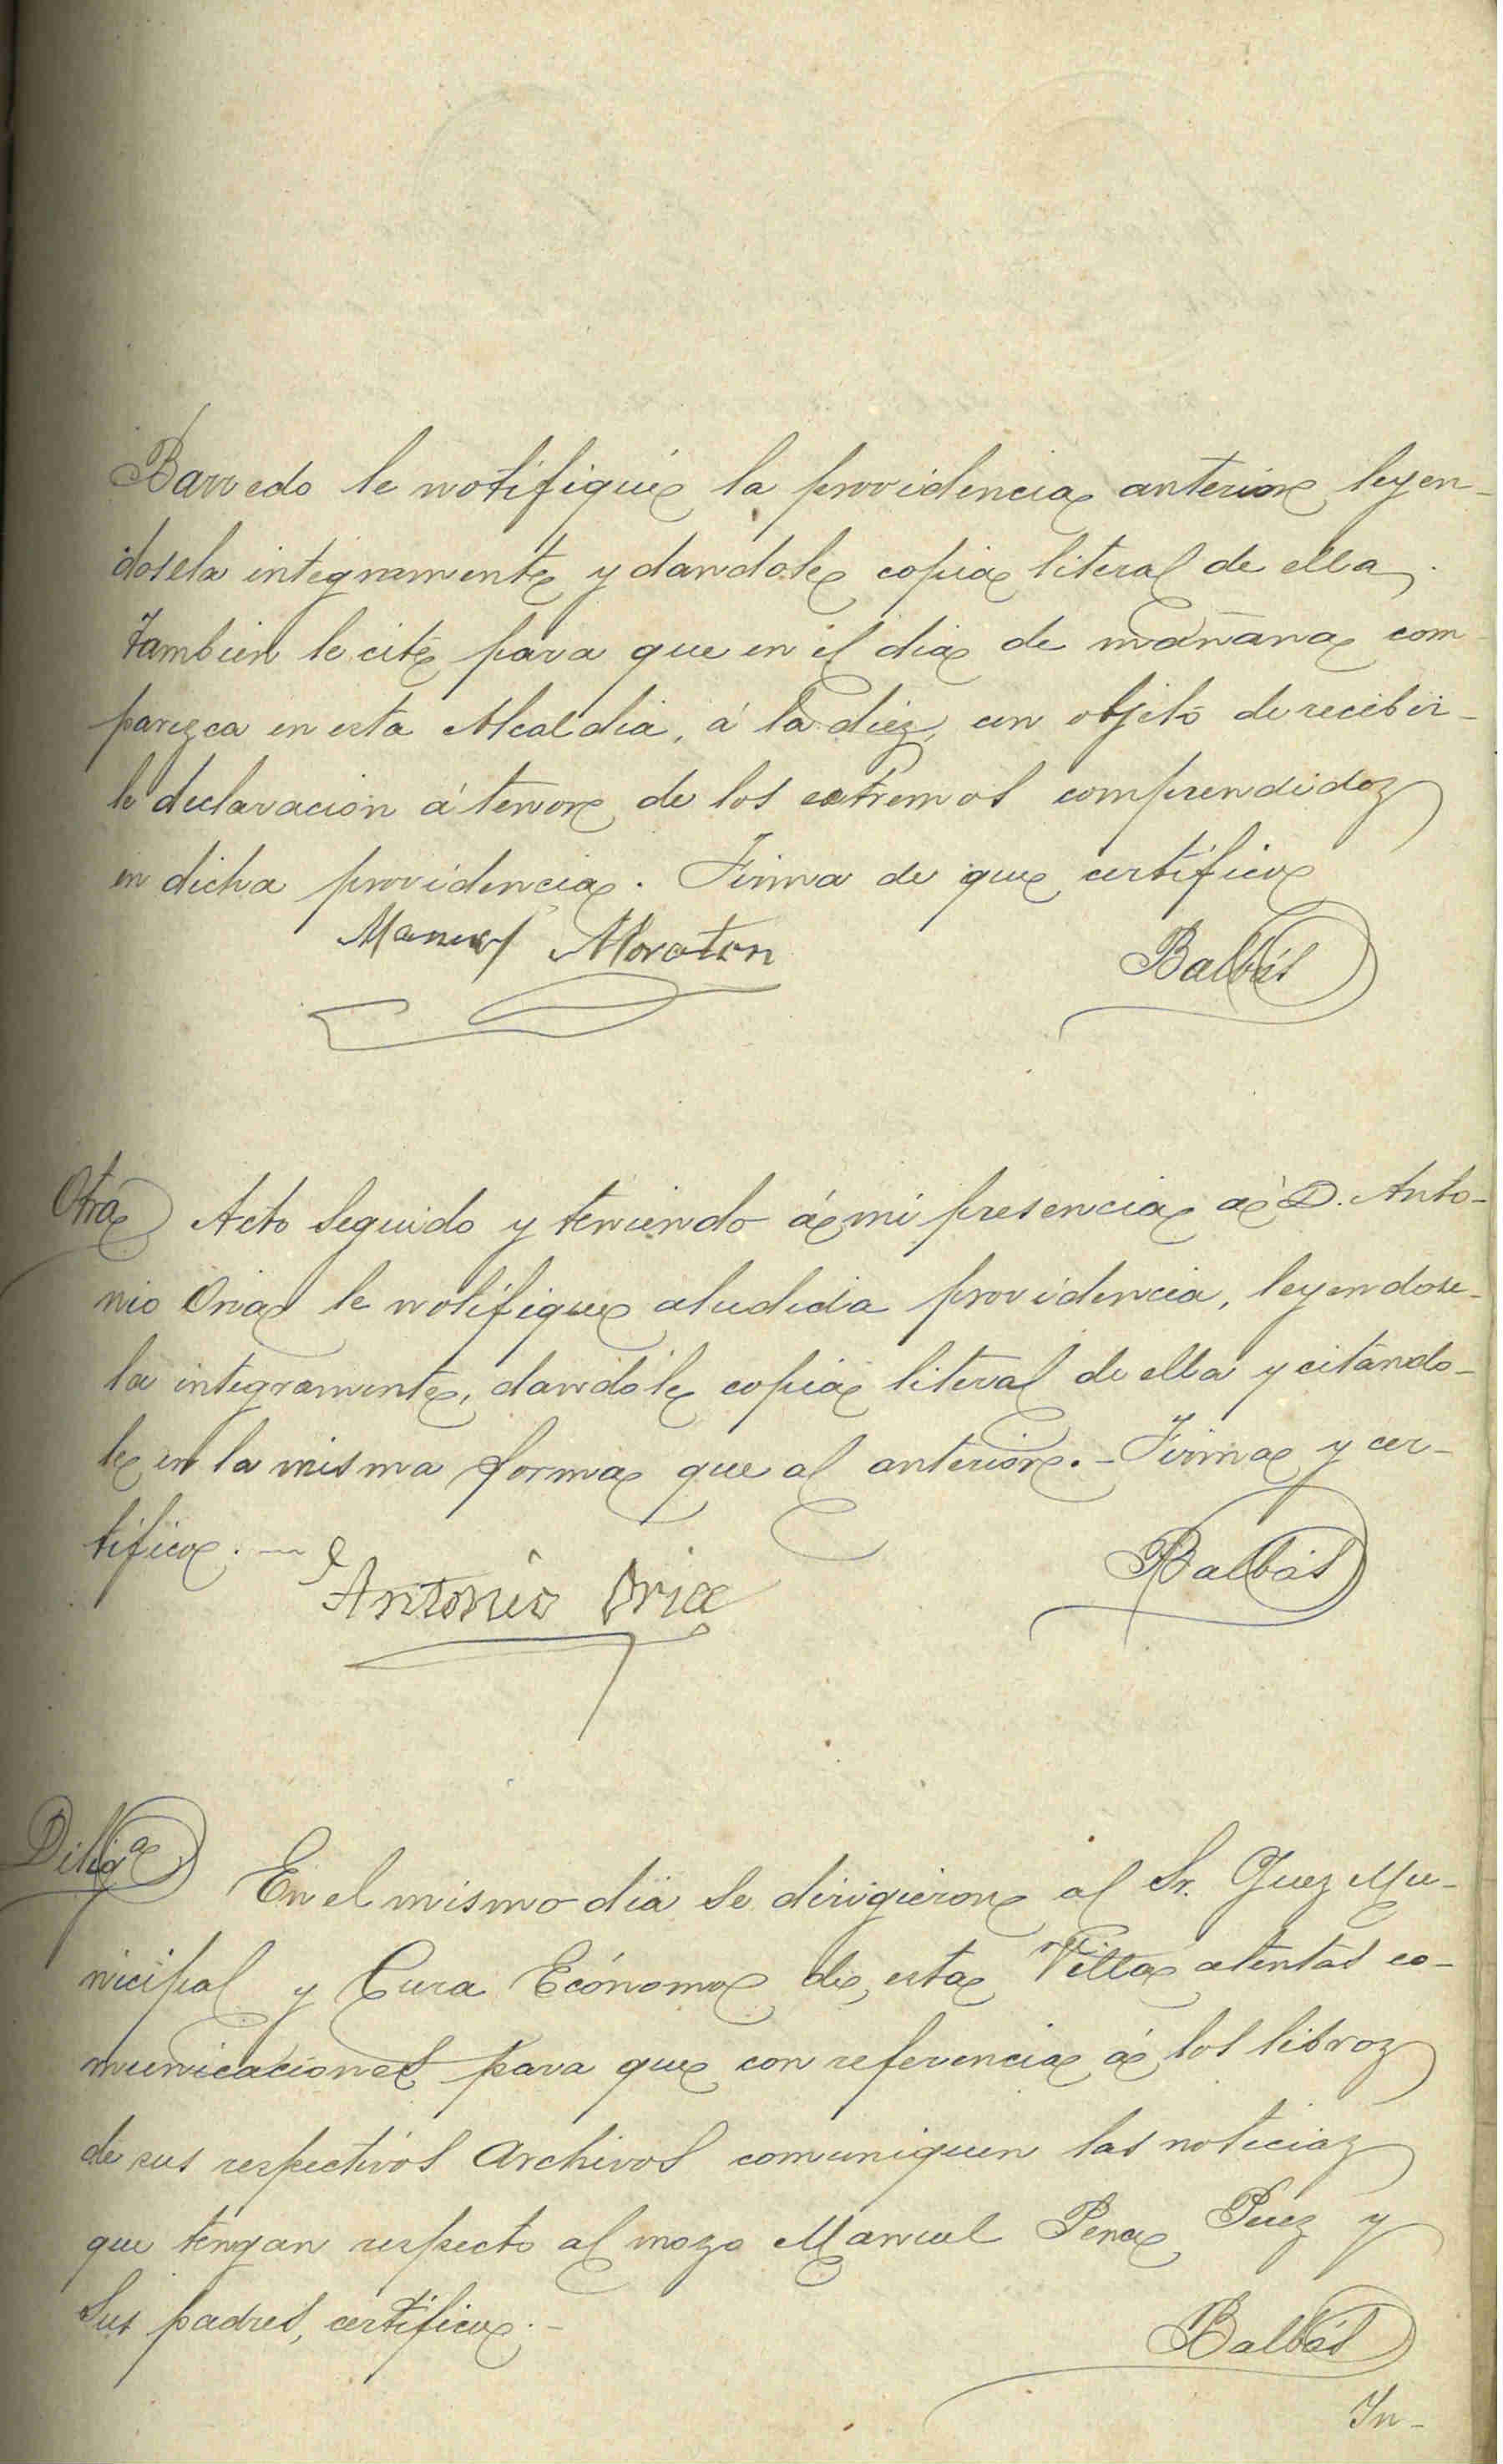 Barredo le notifiqué la providencia anterior leyen-
dosela integramente y dandole copia literal de ella.
Tambien le cité para que en el dia de mañana com-
parezca en esta Alcaldia, á la diez, con objeto de recibir-
le declaracion á tenor de los extremos comprendidos
en dicha providencia. Firma de que certifico
Manuel Moraton Balbás
Otra Acto seguido y teniendo á mi presencia á D. Anto-
nio Oria le notifique aludida providencia, leyendose-
la integramente, dandole copia literal de ella y citando-
le en la misma forma que al anterior. - Firma y cer-
tifico. —
Antonio Oria Balbás
Diligª En el mismo dia se dirigieron al Sr. Juez Mu-
nicipal y Cura Ecónomo de esta Villa atentas co-
municaciones para que con referencia á los libros
de sus respectivos archivos comuniquen las noticias
que tengan respecto al mozo Manuel Pena Perez y
sus padres, certifico. -
Balbás
In-